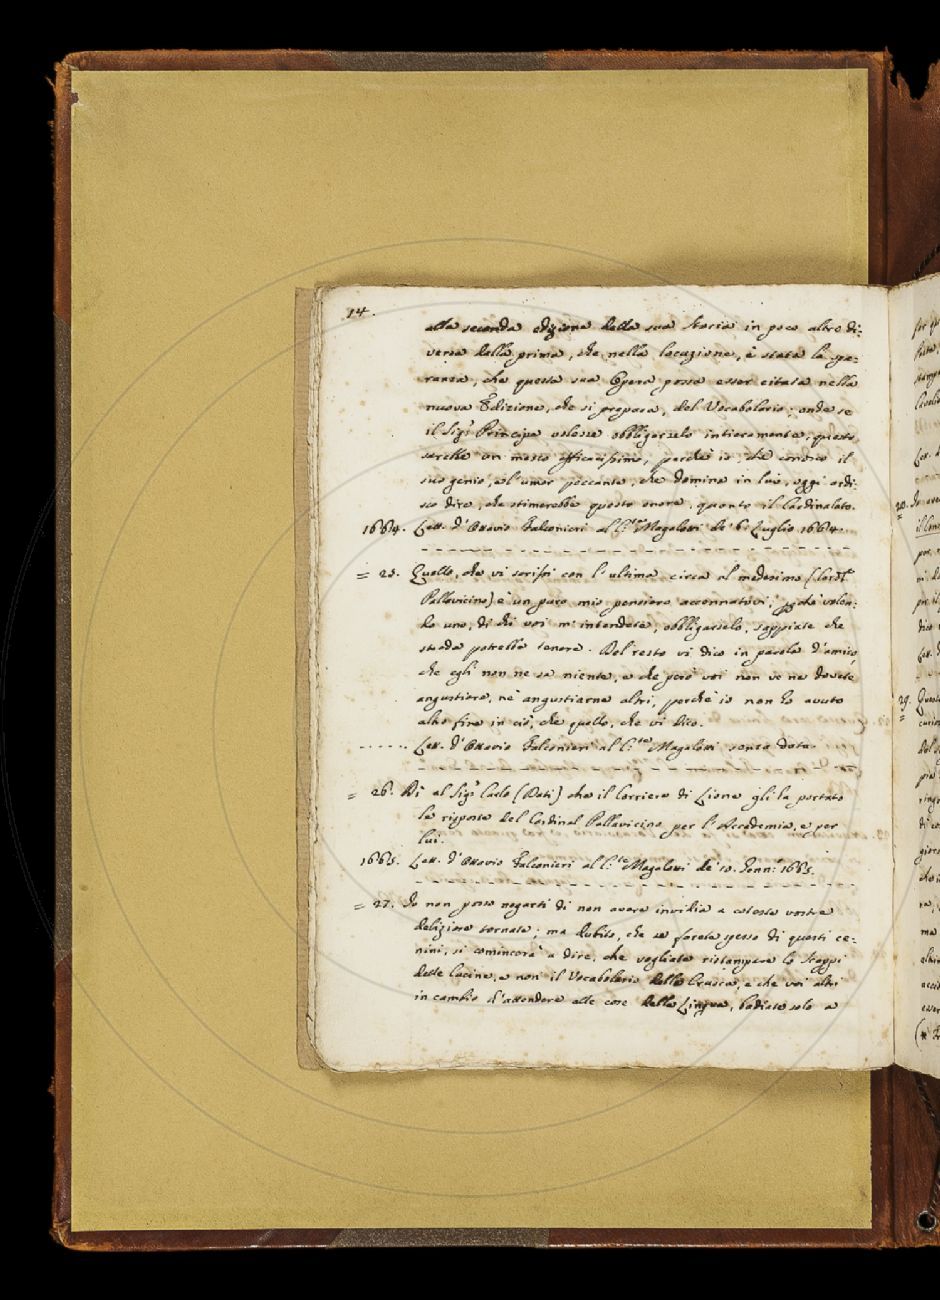 14.
alla seconda edizione della sua Storia in poco altro di:
versa dalla prima, che nella locuzione, è stata la spe:
ranza, che questa sua Opera possa esser citata nella
nuova Edizione, che si prepara, del Vocabolario; onde se
il Sigr. Principe volesse obbligarselo intieramente, questo
sarebbe un mezzo efficacissimo, perchè io, che conosco il
suo genio, e l'umor peccante, che domina in lui, oggi ardi:
sco dire, che stimerebbe questo onore, quanto il Cardinalato.
1664. Lett. d'Ottavio Falconieri al Cte. Magalotti de' 6. Luglio 1664.
= 25. Quello, che vi scrissi con l'ultima circa al medesimo (Cardl.
Pallavicino) è un puro mio pensiero accennatovi, perchè volen:
do uno, di chi voi m'intendete, obbligarselo, sappiate che
strada potrebbe tenere. Del resto vi dico in parola d'amico,
che egli non ne sa niente, e che però voi non ve ne dovete
angustiare, nè angustiarne altri, perchè io non ho avuto
altro fine in ciò, che quello, che vi dico.
...... Lett. d'Ottavio Falconieri al Cte. Magalotti senza data.
= 26. Di al Sigr. Carlo (Dati) che il Corriere di Lione gli ha portato
la risposta del Cardinal Pallavicino per l'Accademia, e per
lui.
1665. Lett. d'Ottavio Falconieri al Cte. Magalotti de' 10. Genn. 1665.
= 27. Io non posso negarti di non avere invidia a coteste vostre
deliziose tornate; ma dubito, che se farete spesso di questi ce:
nini, si comincerà a dire, che vogliate ristampare lo Scappi
delle Cucine, e non il Vocabolario della Crusca, e che voi altri
in cambio d'attendere alle cose della Lingua, badiate solo a
20.
29.